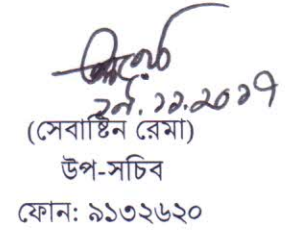 ২৭.১২.২০১৭
(সেবাষ্টিন রেমা)
উপ-সচিব
ফোন: ৯১৩২৬২০